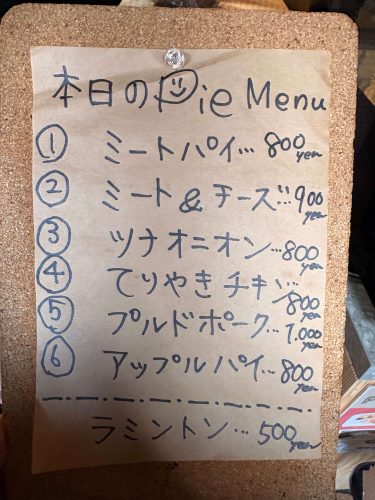 本日のPie Menu
① ミートパイ… 800 yen
② ミート & チーズ… 900 yen
③ ツナオニオン… 800 yen
④ てりやきチキン 800 yen
⑤ プルドポーク… 1,000 yen
⑥ アップルパイ… 800 yen
ラミントン… 500 yen